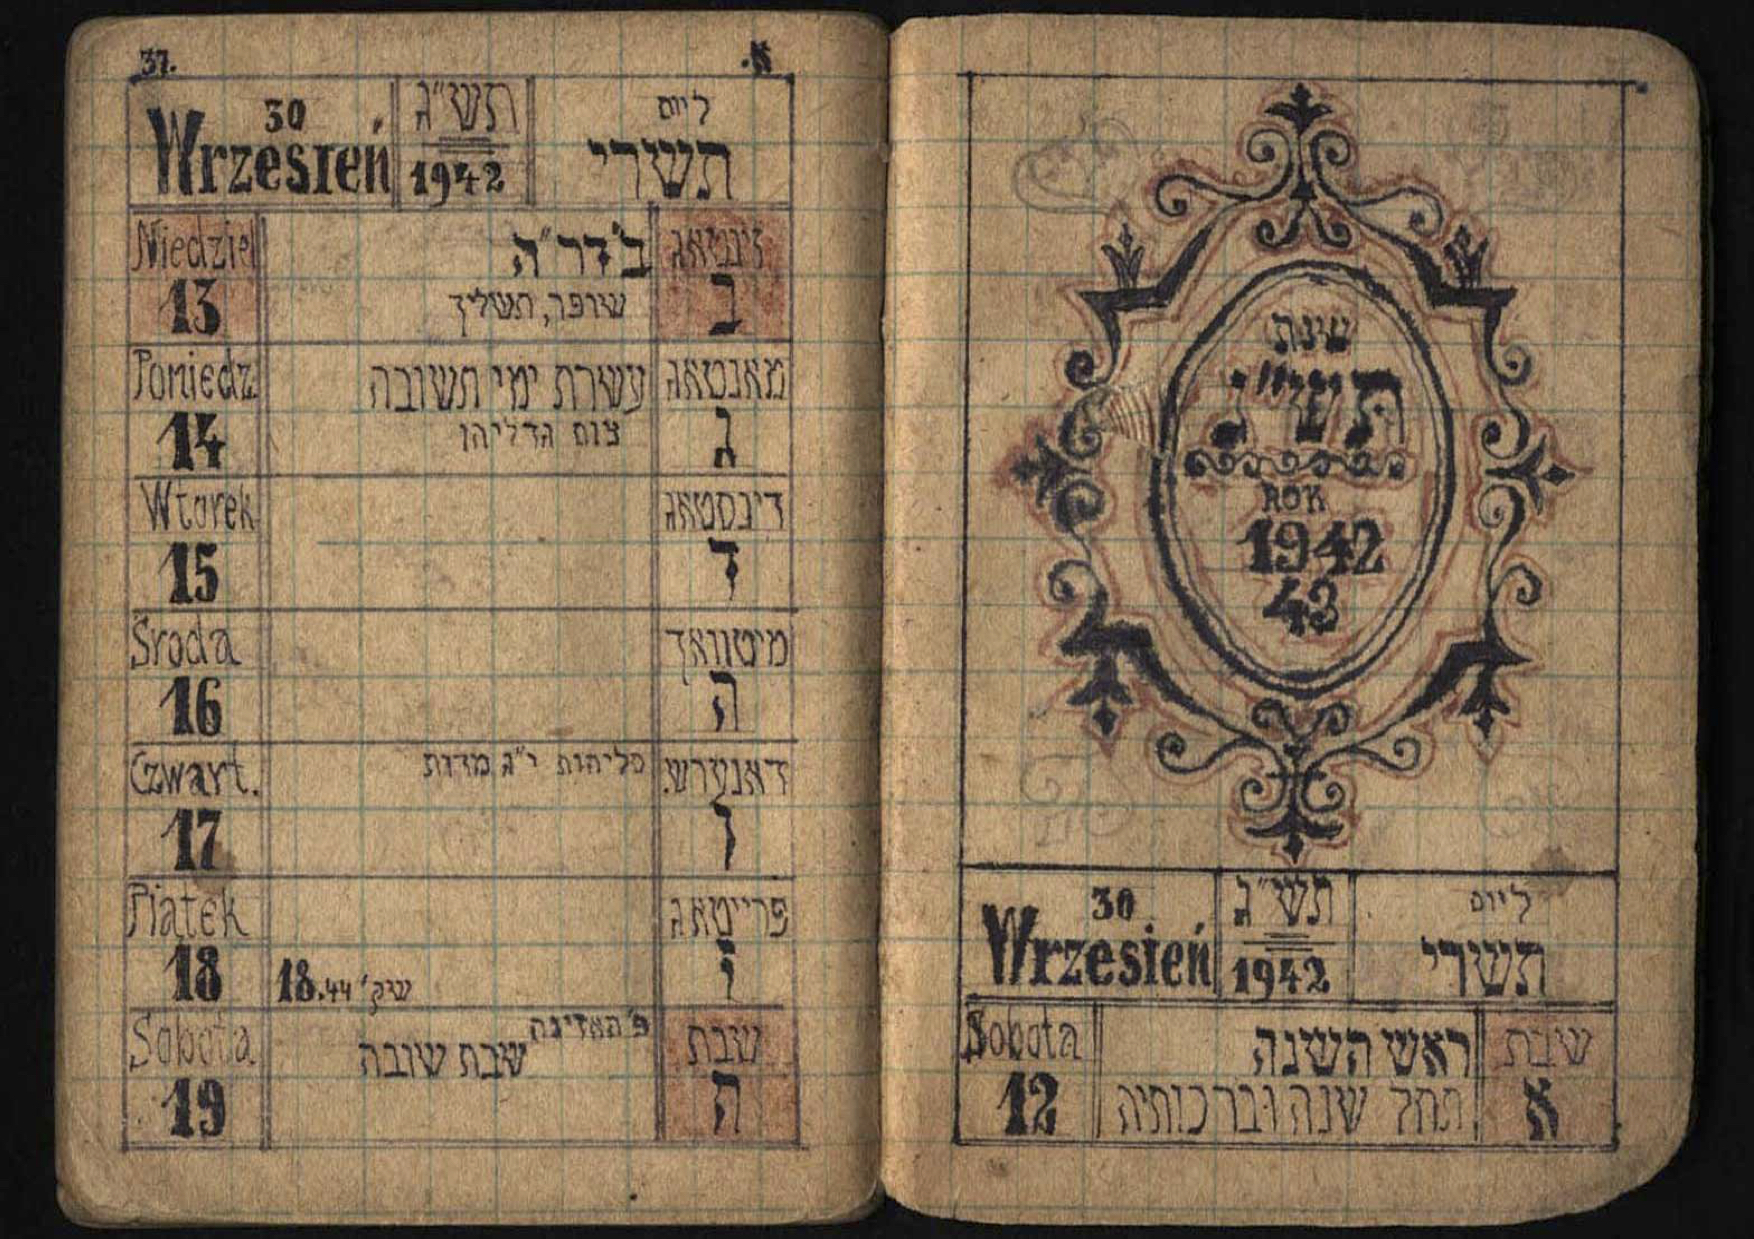 שנת
תש"ג
ROK
1942
43
30
Wrzesień
תש"ג
1942
ל יום
תשרי
Sobota
12
ראש השנה
תחל שנה וברכותיה
שבת
א
37.
א.
30
Wrzesień
תש"ג
1942
ל יום
תשרי
Niedziel
13
ב'דר"ה
שופר, תשליך
זונטאג
ב
Poniedz
14
עשרת ימי תשובה
צום גדליהו
מאנטאג
ג
Wtorek
15
דינסטאג
ד
Sroda
16
מיטוואך
ה
Czwart.
17
סליחות י"ג מדות
דאנערש.
ו
Piątek
18
18.44 שיק'
פרייטאג
ז
Sobota
19
פ' האזינה
שבת שובה
שבת
ח